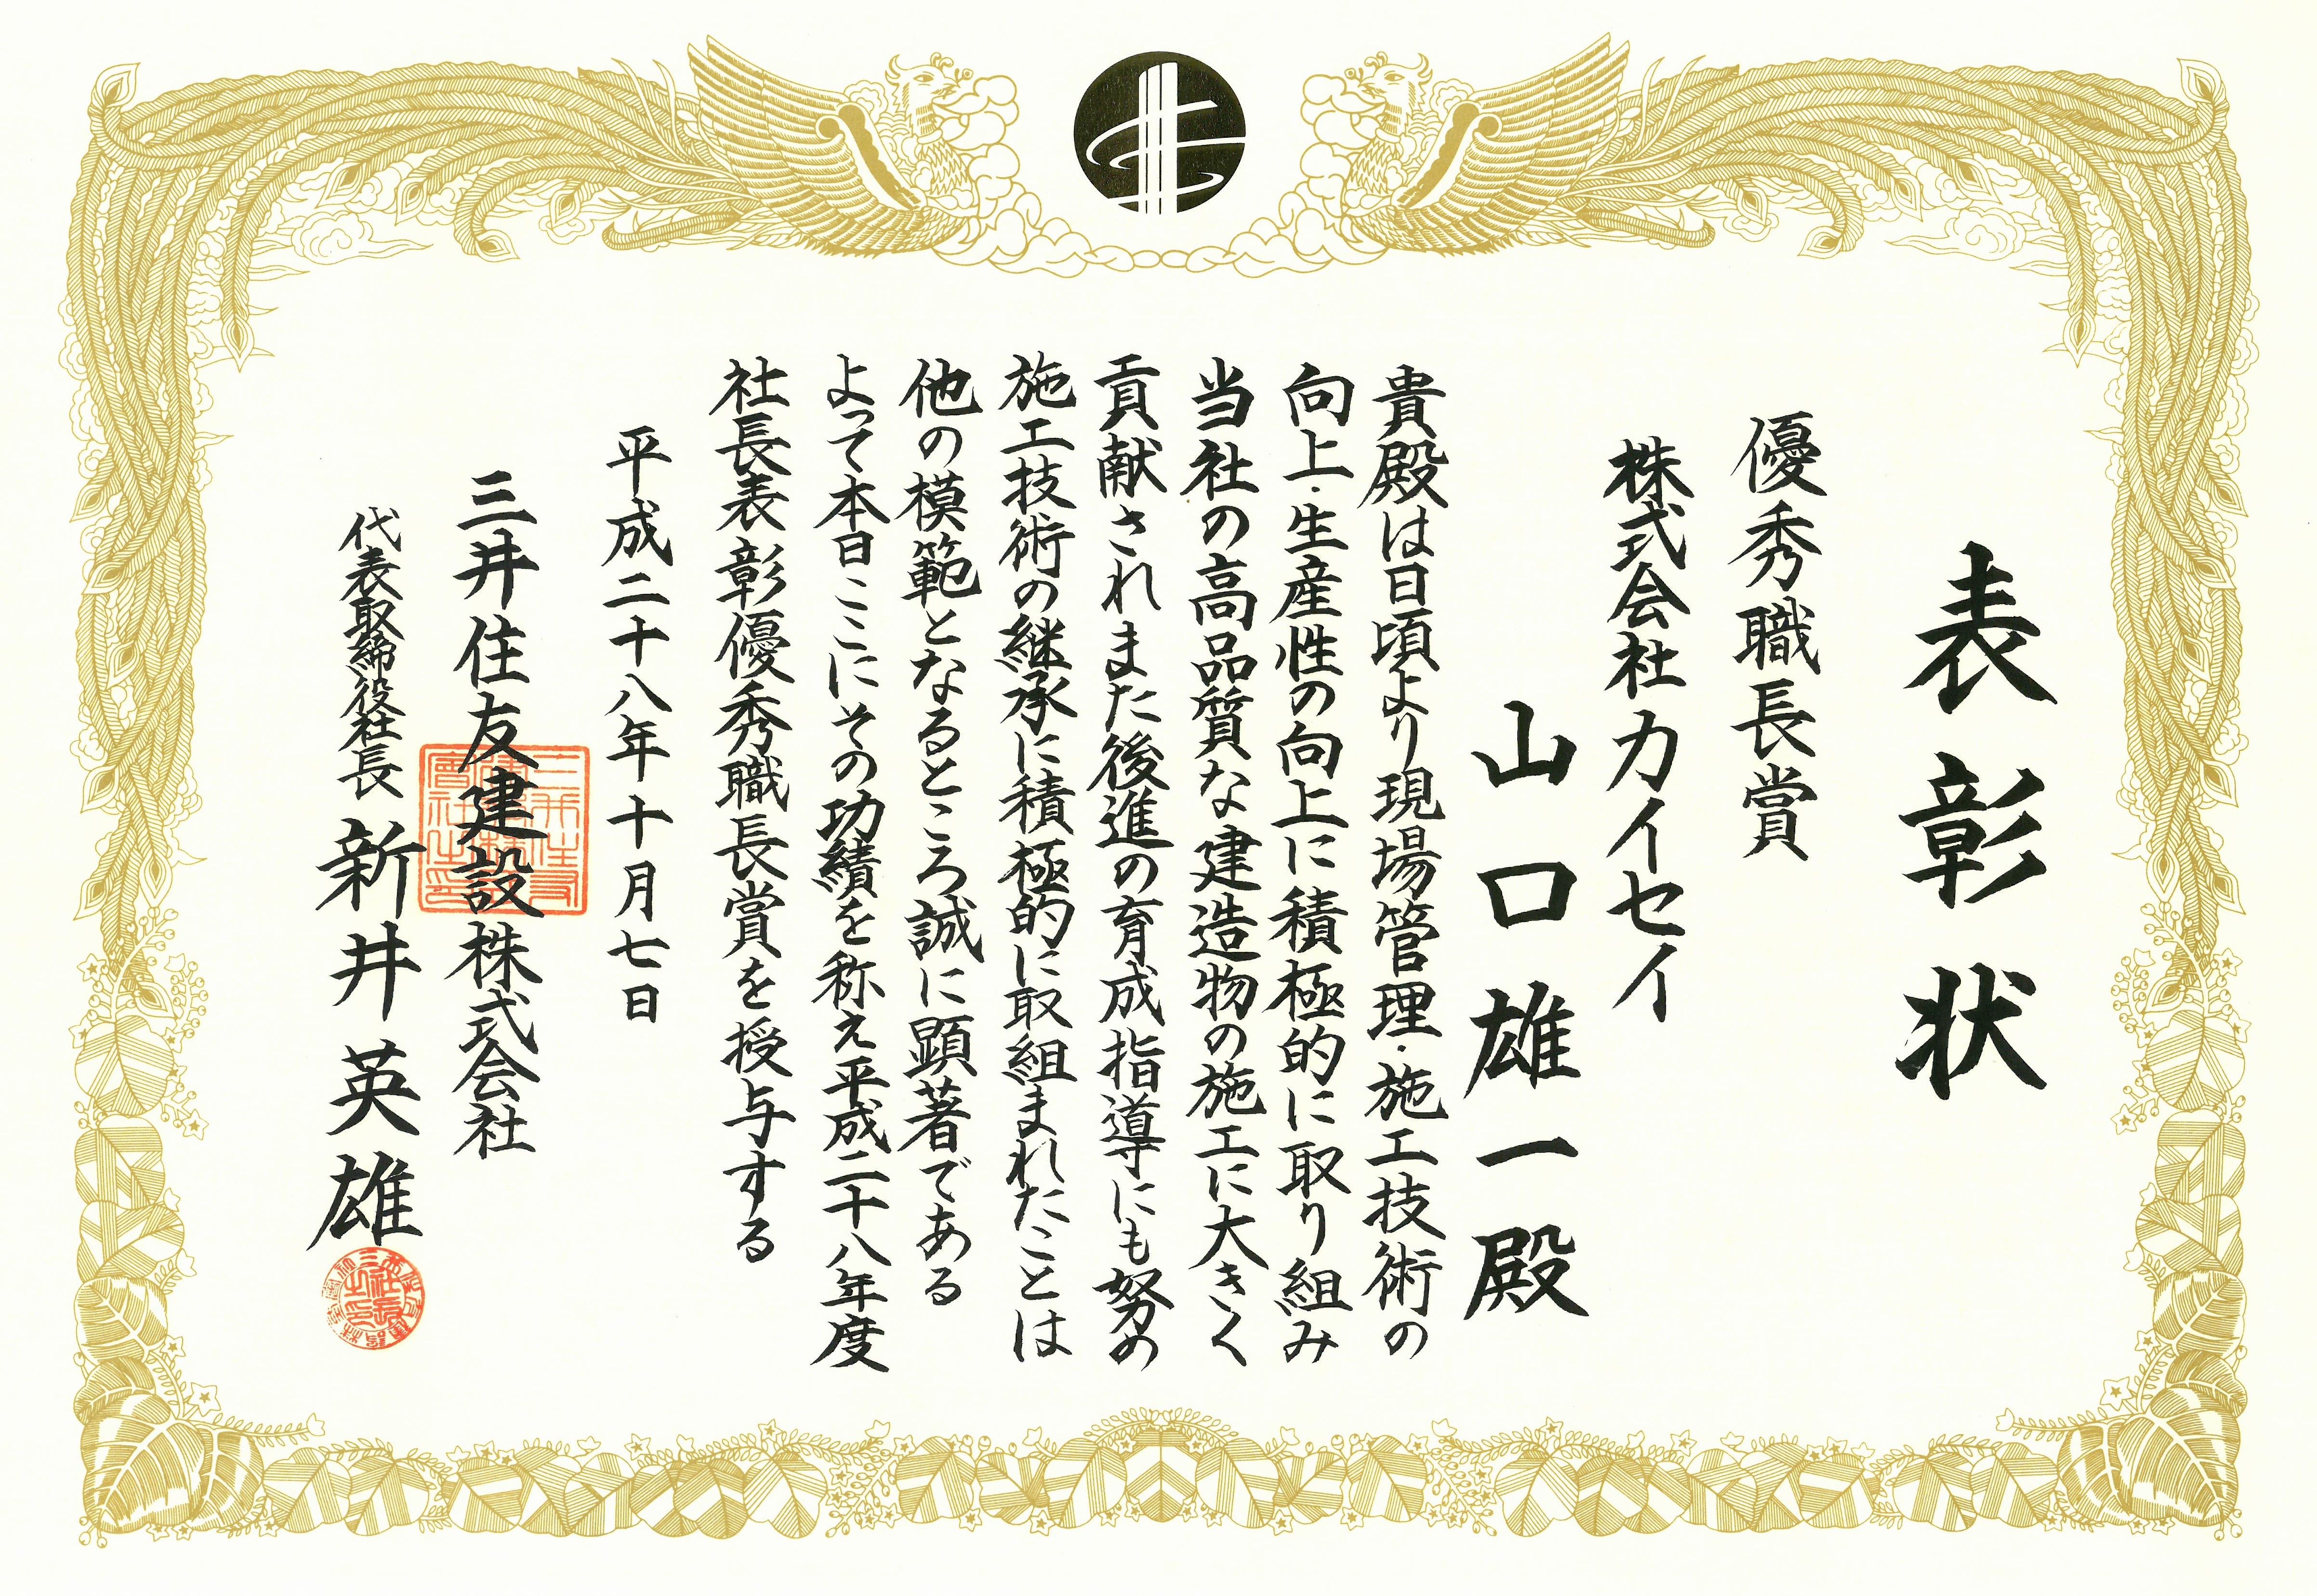 表彰状
優秀職長賞
株式会社カイセイ
山口雄一殿
貴殿は日頃より現場管理・施工技術の
向上・生産性の向上に積極的に取り組み
当社の高品質な建造物の施工に大きく
貢献されまた後進の育成指導にも努め
施工技術の継承に積極的に取組まれたことは
他の模範となるところ誠に顕著である
よって本日ここにその功績を称え平成二十八年度
社長表彰優秀職長賞を授与する
平成二十八年十月七日
三井住友建設株式会社
代表取締役社長 新井英雄